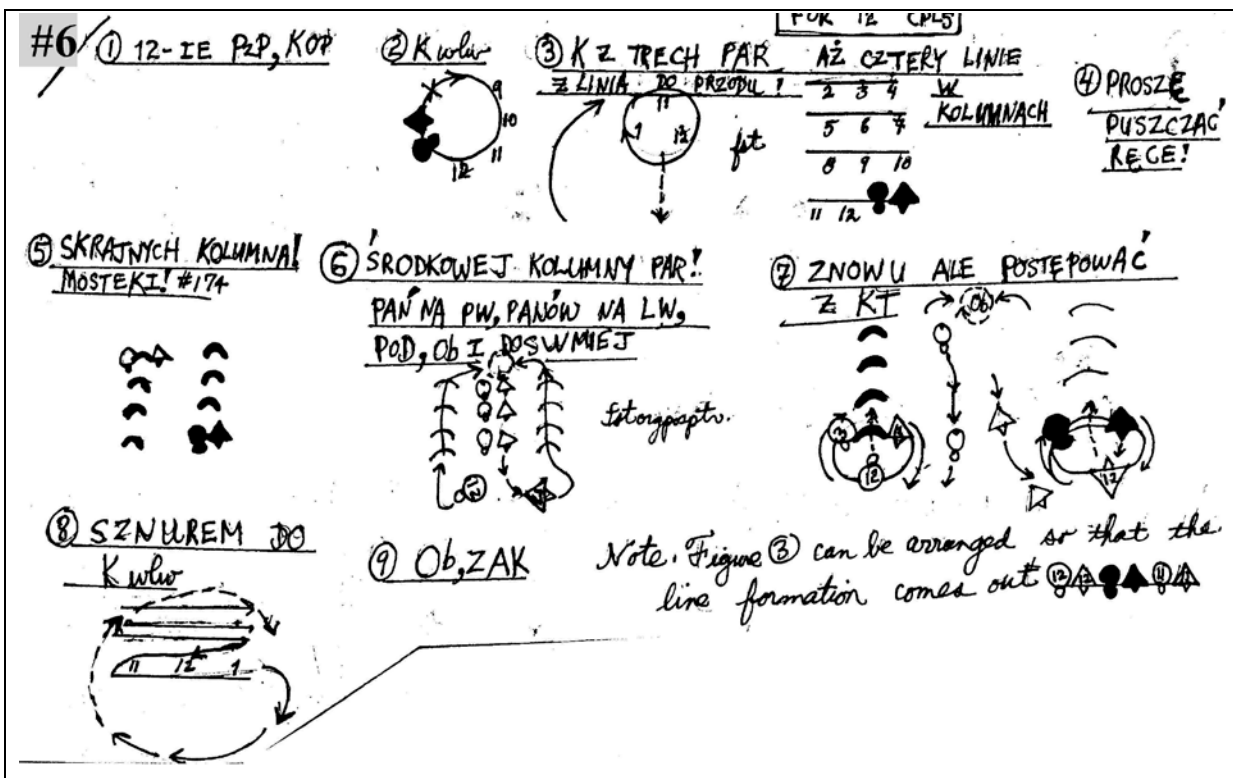 #6
① 12-IE PzP, KOP
② K wlw
9
10
11
12
FOR 12 CPLS
③ K Z TRECH PAR AŻ CZTERY LINIE
Z LINIA DO PRZODU! W
KOLUMNACH
11
1 12
fst
2 3 4
5 6 7
8 9 10
11 12
④ PROSZĘ
PUSZCZAĆ
RĘCE!
⑤ SKRAJNYCH KOLUMNA!
MOSTEKI! #174
⑥ ŚRODKOWEJ KOLUMNY PAR!
PAŃ NA PW, PANÓW NA LW,
POD, Ob I DOSWMIEJ
12
⑦ ZNOWU ALE POSTĘPOWAĆ
Z KT
Ob
3
12
12
⑧ SZNUREM DO
K wlw
11 12 1
⑨ Ob, ZAK
Note. Figure ③ can be arranged so that the
line formation comes out 12 12 11 11